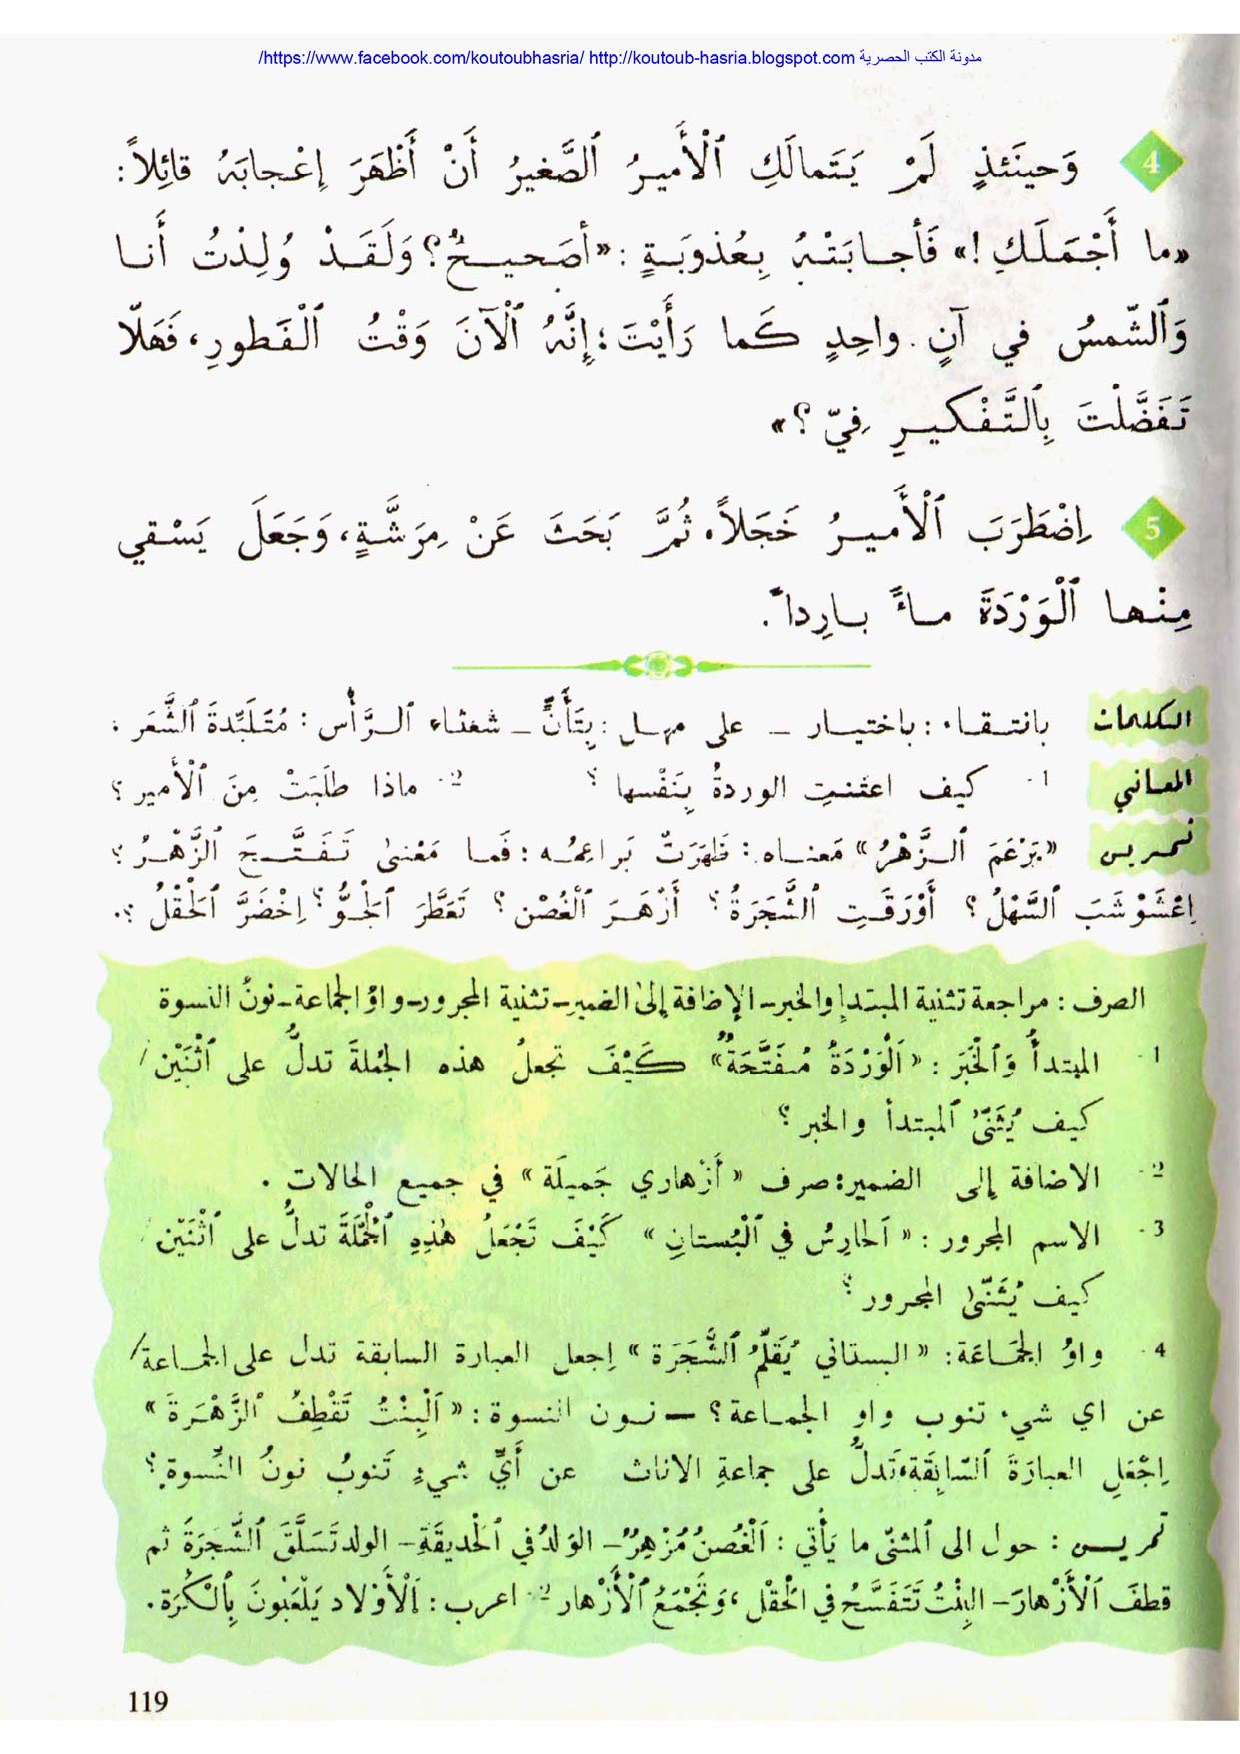 مدونة الكتب الحصرية https://www.facebook.com/koutoubhasria/ http://koutoub-hasria.blogspot.com/
4 وَحينَئذٍ لَمْ يَتَمالَكِ ٱلْأَميرُ ٱلصَّغيرُ أَنْ أَظْهَرَ إِعْجابَهُ قائِلاً:
«ما أَجْمَلَكِ!» فَأجابَتْهُ بِعُذوبَةٍ: «أصَحيحٌ؟ وَلَقَدْ وُلِدْتُ أَنا
وَٱلشّمسُ في آنٍ واحِدٍ كَما رَأَيْتَ؛ إِنَّهُ ٱلْآنَ وَقْتُ ٱلْفَطورِ، فَهَلّا
تَفَضَّلْتَ بِٱلتَّفْكيرِ فِيّ؟»
5 اِضْطَرَبَ ٱلْأَميرُ خَجَلاً، ثُمَّ بَحَثَ عَنْ مِرَشَّةٍ، وَجَعَلَ يَسْقي
مِنْها ٱلْوَرْدَةَ ماءً بارِداً.
الكلمات بانتقاء: باختيار - على مهل: بِتَأَنٍّ - شعثاء الرَّأْس: مُتَلَبِّدةَ ٱلشَّعَر.
المعاني 1- كيف اعتنتِ الوردةُ بِنَفْسها؟ 2- ماذا طَلَبَتْ مِنَ ٱلْأَمير؟
تمرين «بَرْعَمَ ٱلزَّهْرُ» مَعناه: ظَهَرَتْ بَراعِمُه: فَما مَعْنىٰ تَفَتَّحَ ٱلزَّهْرُ؟
اِعْشَوْشَبَ ٱلسَّهْلُ؟ أَوْرَقَتِ ٱلشَّجَرَةُ؟ أَزْهَرَ ٱلْغُصْن؟ تَعَطَّرَ ٱلْجَوُّ؟ اِخْضَرَّ ٱلْحَقْلُ؟.
الصرف: مراجعة تثنية المبتدإ والخبر - الإضافة إلىٰ الضمير - تثنية المجرور - واوُ الجماعة - نونُ النسوة
1- المبتدأُ وَٱلْخَبَر: «اَلْوَرْدَةُ مُفَتَّحَةٌ» كَيْفَ تجعلُ هذه الجُملةَ تدلُّ على ٱثْنَيْن/
كيف يُثَنّىٰ ٱلمبتدأ والخبر؟
2- الاضافة إلى الضمير: صرف «أَزْهاري جَميلَة» في جميع الحالات.
3- الاسم المجرور: «اَلحارِسُ في ٱلْبُستانِ» كَيْفَ تَجْعَلُ هٰذِهِ ٱلْجُمْلَةَ تدلُّ على ٱثْنَيْن/
كيف يُثَنّىٰ المجرور؟
4- واوُ الجَمَاعَة: «البستاني يُقَلّمُ ٱلشَّجَرَة» اِجعل العبارة السابقة تدل على الجماعة/
عن اي شيء تنوب واو الجماعة؟ - نون النسوة: «اَلْبِنْتُ تَقْطِفُ ٱلزَّهْرَةَ»
اِجْعَلِ العبارَةَ ٱلسّابِقَةَ تَدلُّ على جماعةِ الاناث عن أَيِّ شيءٍ تَنوبُ نونُ النِّسوةِ؟
تمريـن: حول الى ٱلمثنّى ما يَأتي: اَلْغُصنُ مُزْهِرٌ - الوَلدُ في ٱلْحديقَةِ - الولد تَسَلَّقَ ٱلشَّجَرَةَ ثم
قطفَ ٱلْأَزْهارَ - البِنْتُ تَتَفَسَّحُ في ٱلْحَقْل، وَتَجْمَعُ ٱلْأَزْهار 2- اعرب: اَلْأَوْلاد يَلْعَبُونَ بِٱلْكُرَة.
119